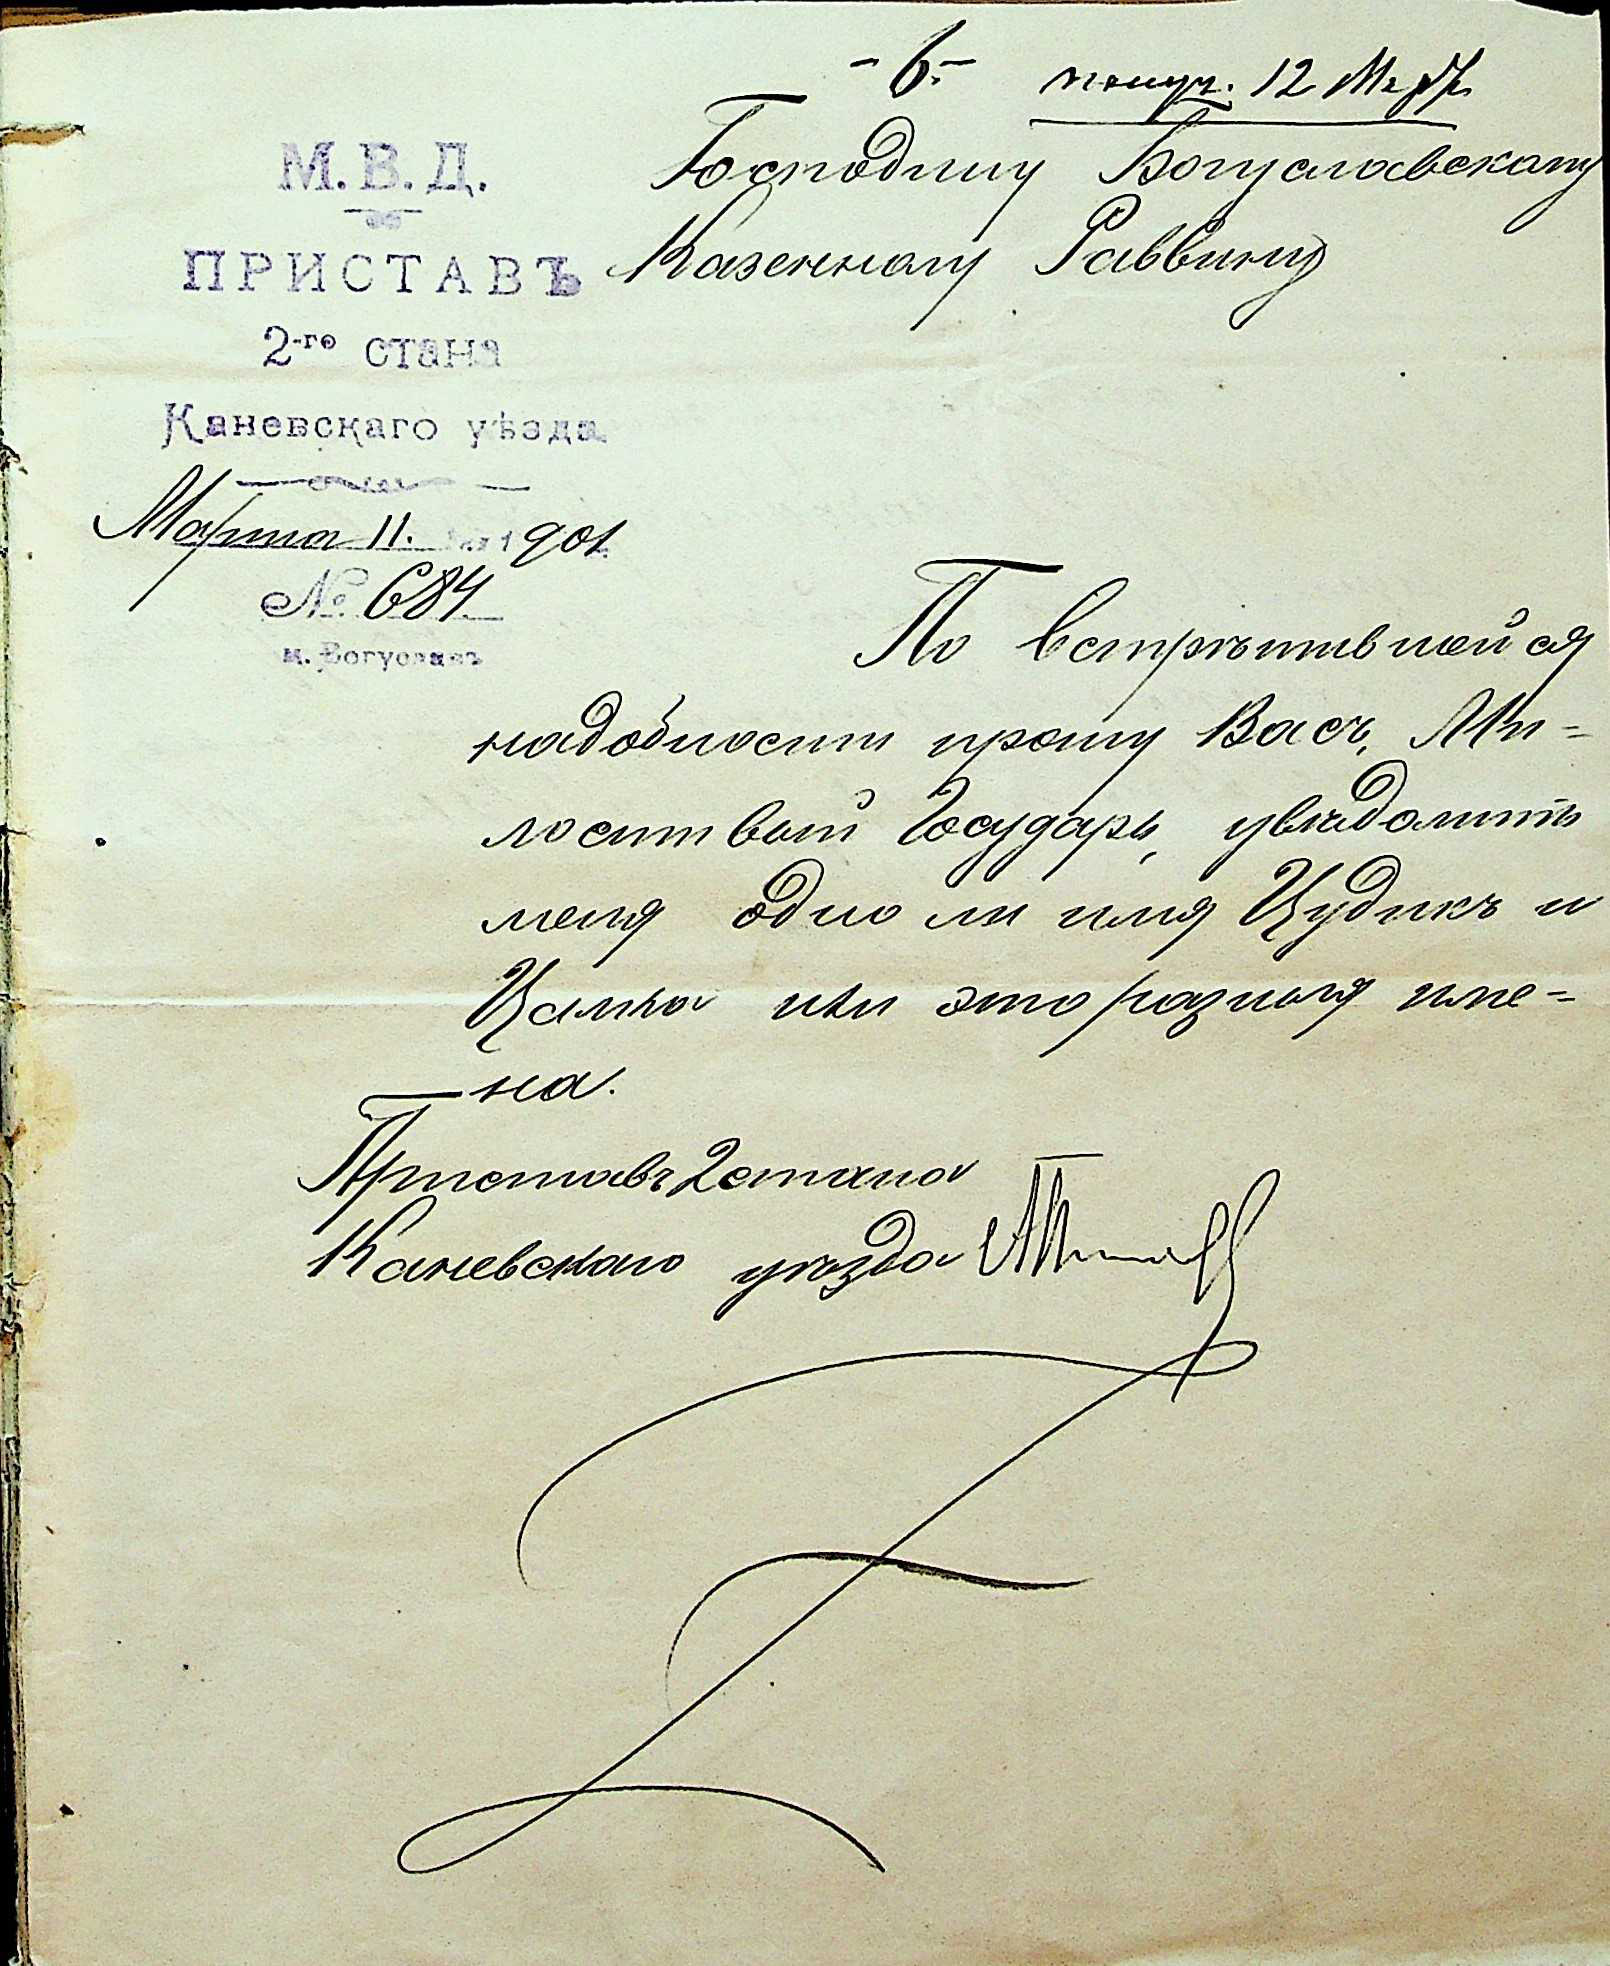 -6.-
получ. 12 Мар
М. В. Д.
ПРИСТАВЪ
2-го стана
Каневскаго уѣзда
Марта 11. 1901
№ 684
м. Богуславъ
Господину Богуславскому
Казенному Раввину
По встрѣтившейся
надобности прошу Васъ, Ми=
лостивый Государь, увѣдомить
меня одно ли имя Цудикъ и
Цалка или это разныя име=
на.
Приставъ 2 стана
Каневскаго уѣзда